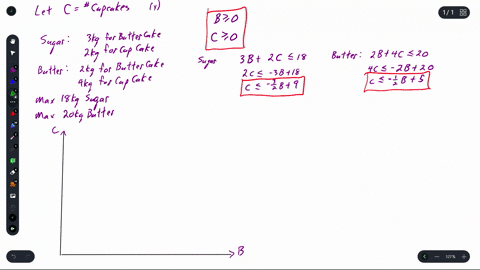 Let C = # Cupcakes (y)
Sugar: 3kg for ButterCake
2kg for CupCake
Butter: 2kg for ButterCake
4kg for CupCake
max 18kg Sugar
max 20kg Butter
B ≥ 0
C ≥ 0
Sugar 3B + 2C ≤ 18
2C ≤ -3B+18
Butter: 2B+4C ≤ 20
4C ≤ -2B+20
C ≤ -½B+5
C
B
1 / 1